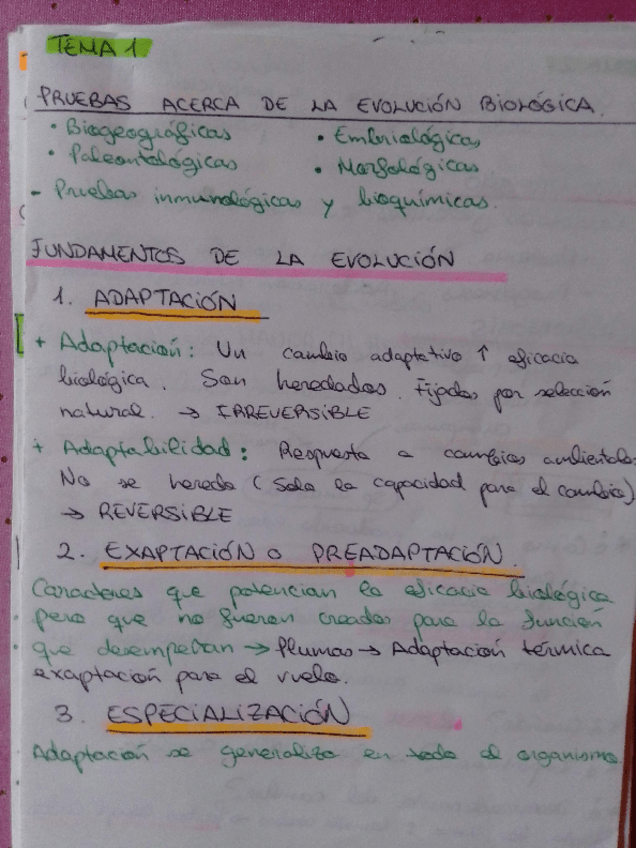 TEMA 1
PRUEBAS ACERCA DE LA EVOLUCIÓN BIOLÓGICA.
• Biogeográficas • Embriológicas
• Paleontológicas • Morfológicas
- Pruebas inmunológicas y bioquímicas.
FUNDAMENTOS DE LA EVOLUCIÓN
1. ADAPTACIÓN
+ Adaptación: Un cambio adaptativo ↑ eficacia
biológica. Son heredados. Fijados por selección
natural. → IRREVERSIBLE
+ Adaptabilidad: Respuesta a cambios ambientales
No se hereda (Solo la capacidad para el cambio)
→ REVERSIBLE
2. EXAPTACIÓN O PREADAPTACIÓN.
Caracteres que potencian la eficacia biológica
pero que no fueron creados para la función
que desempeñan → Plumas → Adaptación térmica
exaptación para el vuelo.
3. ESPECIALIZACIÓN
Adaptación se generaliza en todo el organismo.